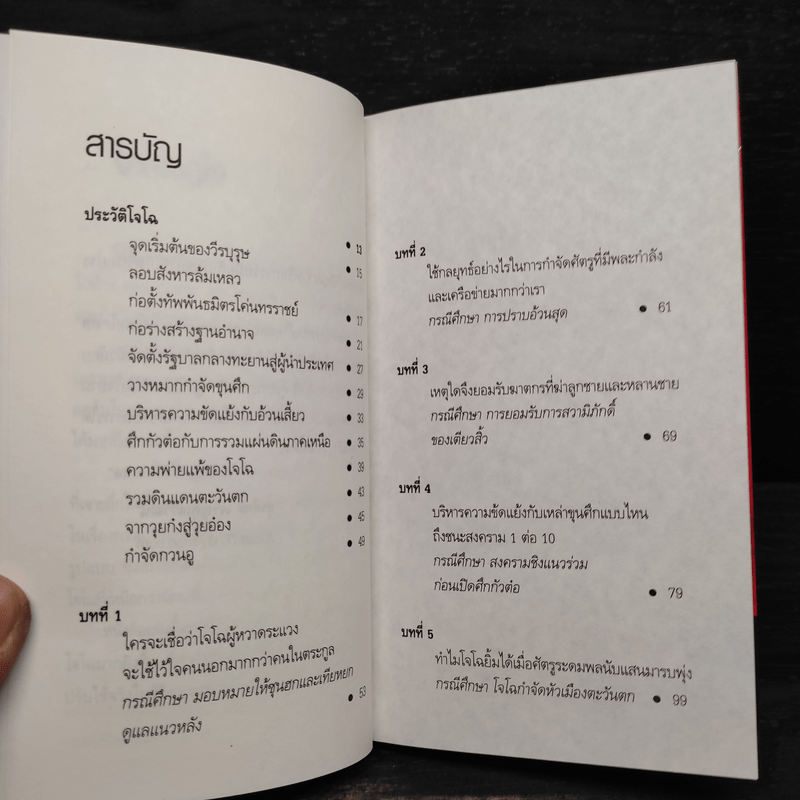 สารบัญ
ประวัติโจโฉ
จุดเริ่มต้นของวีรบุรุษ • 11
ลอบสังหารล้มเหลว • 15
ก่อตั้งทัพพันธมิตรโค่นทรราชย์ • 17
ก่อร่างสร้างฐานอำนาจ • 21
จัดตั้งรัฐบาลกลางทะยานสู่ผู้นำประเทศ • 27
วางหมากกำจัดขุนศึก • 29
บริหารความขัดแย้งกับอ้วนเสี้ยว • 33
ศึกกัวต๋อกับการรวมแผ่นดินภาคเหนือ • 35
ความพ่ายแพ้ของโจโฉ • 39
รวมดินแดนตะวันตก • 43
จากวุยก๋งสู่วุยอ๋อง • 45
กำจัดกวนอู • 49
บทที่ 1
ใครจะเชื่อว่าโจโฉผู้หวาดระแวง
จะใช้ไว้ใจคนนอกมากกว่าคนในตระกูล
กรณีศึกษา มอบหมายให้ซุนฮกและเทียหยก • 53
ดูแลแนวหลัง
บทที่ 2
ใช้กลยุทธ์อย่างไรในการกำจัดศัตรูที่มีพละกำลัง
และเครือข่ายมากกว่าเรา
กรณีศึกษา การปราบอ้วนสุด • 61
บทที่ 3
เหตุใดจึงยอมรับฆาตกรที่ฆ่าลูกชายและหลานชาย
กรณีศึกษา การยอมรับการสวามิภักดิ์
ของเตียวสิ้ว • 69
บทที่ 4
บริหารความขัดแย้งกับเหล่าขุนศึกแบบไหน
ถึงชนะสงคราม 1 ต่อ 10
กรณีศึกษา สงครามชิงแนวร่วม
ก่อนเปิดศึกกัวต๋อ • 79
บทที่ 5
ทำไมโจโฉยิ้มได้เมื่อศัตรูระดมพลนับแสนมารบพุ่ง
กรณีศึกษา โจโฉกำจัดหัวเมืองตะวันตก • 99